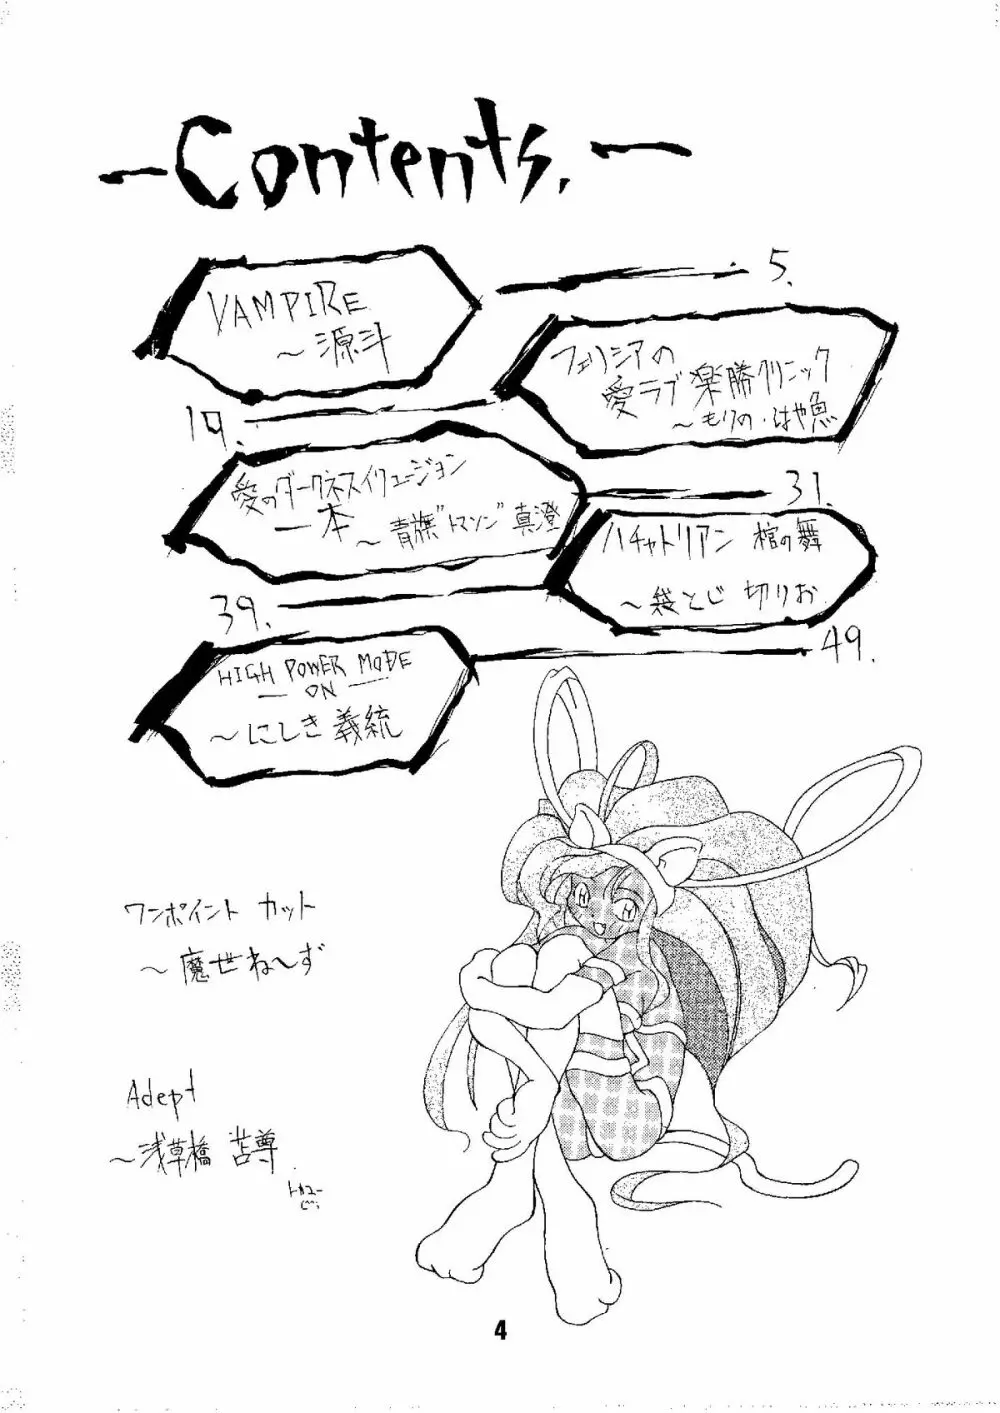 -Contents.-
VAMPIRE
～源斗
5.
フェリシアの
愛ラブ楽勝クリニック
～もりの・はや魚
19.
愛のダークネスイリュージョン
一本
～青旗"トマソン"真澄
31.
ハチャトリアン 棺の舞
～袋とじ 切りお
39.
HIGH POWER MODE
— ON —
～にしき義統
49.
ワンポイント カット
～魔世ねーず
Adept
～浅草橋 苫尊
4